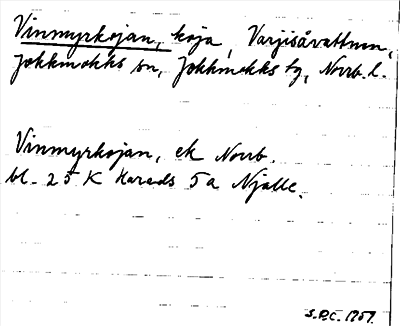 Vinmyrkojan, koja, Varjisåvattnen,
Jokkmokks sn, Jokkmokks tg, Norrb. l.
Vinmyrkojan, ek Norrb.
bl. 25 K Harads 5a Njalle.